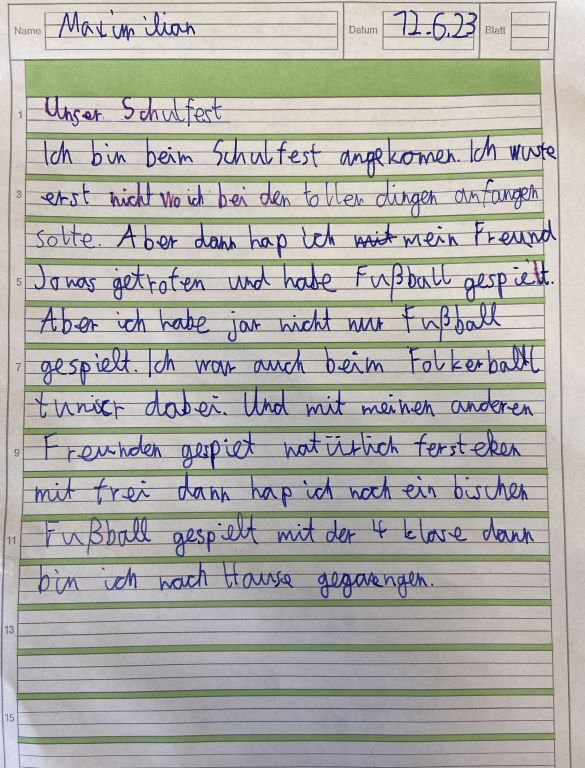 Name Maximilian Datum 12.6.23 Blatt
1 Unser Schulfest
Ich bin beim Schulfest angekomen. Ich wuste
3 erst nicht wo ich bei den tollen dingen anfangen
solte. Aber dann hap ich mit mein Freund
5 Jonas getrofen und habe Fußball gespielt.
Aber ich habe jar nicht nur Fußball
7 gespielt. Ich war auch beim Folkerball
tunier dabei. Und mit meinen anderen
9 Freunden gespiet natürlich fersteken
mit frei dann hap ich noch ein bischen
11 Fußball gespielt mit der 4 klase dann
bin ich nach Hause gegangen.
13
15